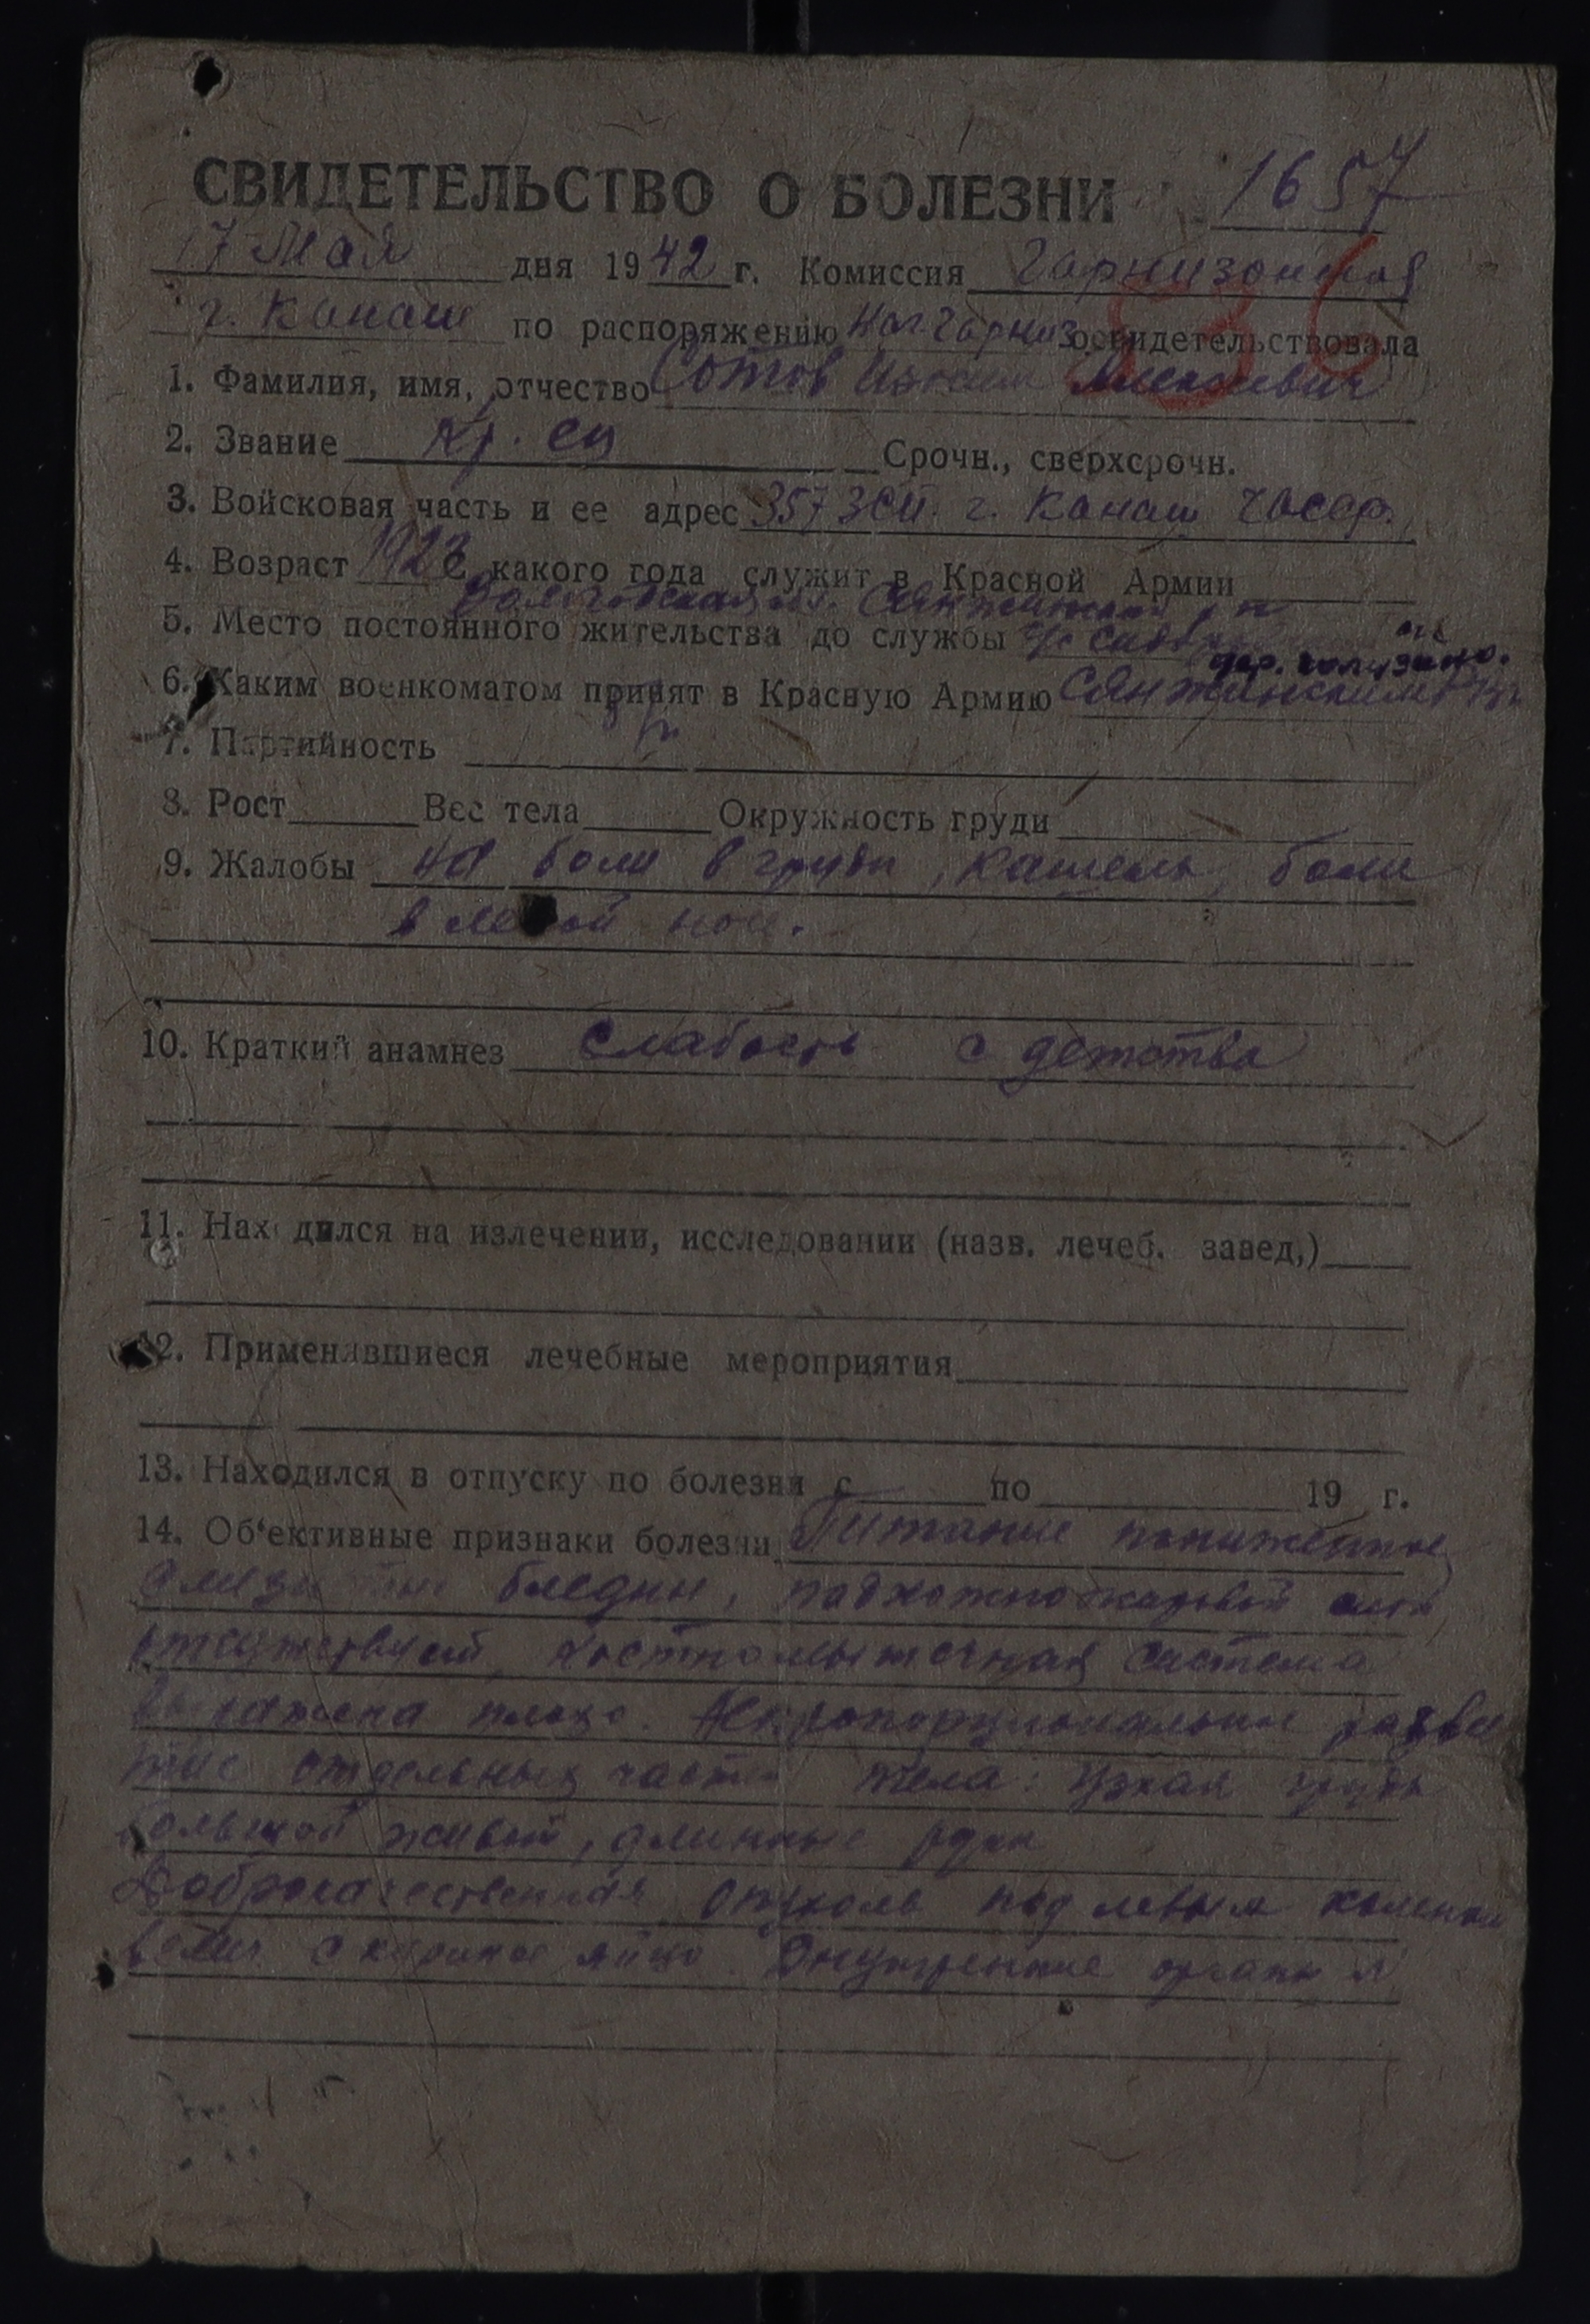 СВИДЕТЕЛЬСТВО О БОЛЕЗНИ 1657
17 Мая дня 1942 г. Комиссия Гарнизонная
г. Канаш по распоряжению Нач. Гарниз освидетельствовала
36
1. Фамилия, имя, отчество Сотов Алексеевич
2. Звание Кр. ец Срочн., сверхсрочн.
3. Войсковая часть и ее адрес 357 ЗСП г. Канаш ЧАССР.
4. Возраст 1923 какого года служит в Красной Армии
Вологодская
5. Место постоянного жительства до службы
дер. Голузино.
6. Каким военкоматом принят в Красную Армию Сянжинским РВК
7. Партийность б/п
8. Рост Вес тела Окружность груди
9. Жалобы на боли в груди, кашель, боли
в левой ноге.
10. Краткий анамнез Слабость с детства
11. Находился на излечении, исследовании (назв. лечеб. завед,)
12. Применявшиеся лечебные мероприятия
13. Находился в отпуску по болезни с по 19 г.
14. Об'ективные признаки болезни Питание пониженное,
бледны, подкожножировой слой
отсутствует, костномышечная система
выражена плохо. Непропорциональное разви
тие отдельных частей тела: узкая грудь
большой живот, длинные руки
Доброкачественная опухоль под левым коленом
велич. с куриное яйцо. Внутренние органы N